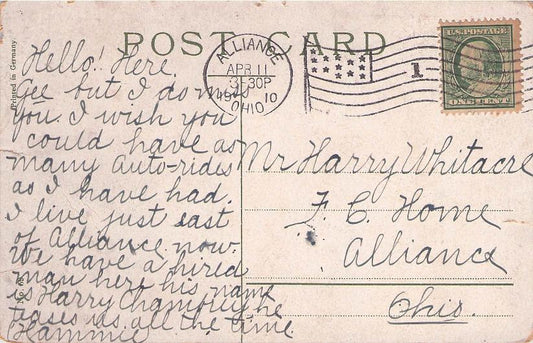 POST CARD
Printed in Germany.
ALLIANCE
APR 11
3:30P
1910
OHIO
1
U.S. POSTAGE
ONE CENT
Hello! Here.
Gee but I do miss
you. I wish you
could have as
many auto-rides
as I have had.
I live just east
of Alliance now.
We have a hired
man here his name
is Harry he
teases us all the time
Hammie
Mr Harry Whitacre
F. C. Home
Alliance
Ohio.